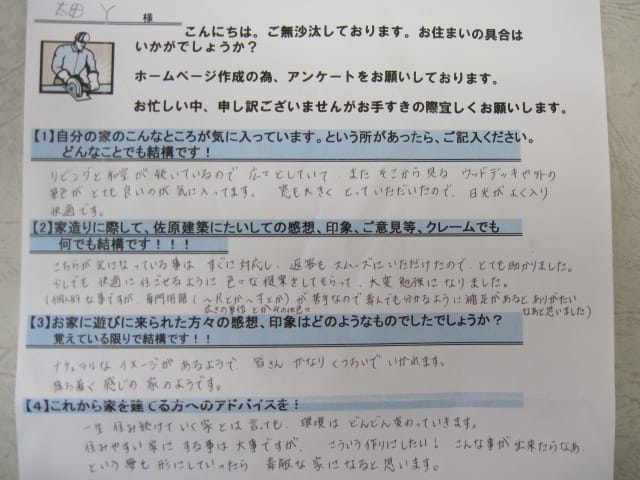 太田 Y 様
こんにちは。ご無沙汰しております。お住まいの具合は
いかがでしょうか？
ホームページ作成の為、アンケートをお願いしております。
お忙しい中、申し訳ございませんがお手すきの際宜しくお願いします。
【1】自分の家のこんなところが気に入っています。という所があったら、ご記入ください。
どんなことでも結構です！
リビングと和室が続いているので 広々としていて、また そこから見る ウッドデッキや外の
景色が とても良いのが気に入ってます。 窓も大きく とっていただいたので、日光がよく入り
快適です。
【2】家造りに際して、佐原建築にたいしての感想、印象、ご意見等、クレームでも
何でも結構です！！！
こちらが気になっている事は すぐに対応し、返答も スムーズにいただけたので、とても助かりました。
少しでも 快適に 住ごせるように 色々な 提案をしてもらって、大変 勉強に なりました。
(個人的な事ですが、専門用語 (〜尺とか〜すとか) が 苦手なので 素人でも分かるように 補足があると ありがたい
広さの単位 とか その他色々
なあと思いました)
【3】お家に遊びに来られた方々の感想、印象はどのようなものでしたでしょうか？
覚えている限りで結構です！
ナチュラルな イメージが あるようで、皆さん かなり くつろいで いかれます。
落ち着く 感じの 家のようです。
【4】これから家を建てる方へのアドバイスを！
一生 住み続けていく家 とは 言っても、環境は どんどん変わっていきます。
住みやすい家に する事は 大事ですが、 こういう作りにしたい！ こんな事が 出来たらなあ
という 夢も 形にしていったら 素敵な 家に なると 思います。